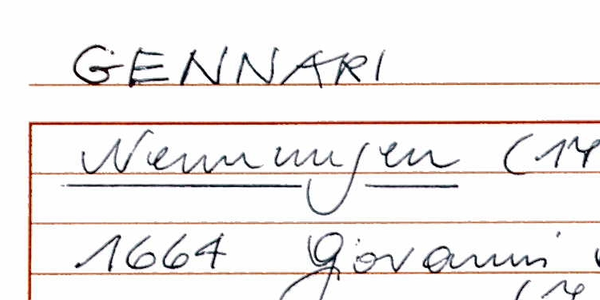 GENNARI
Nennungen (14
1664 Giovanni